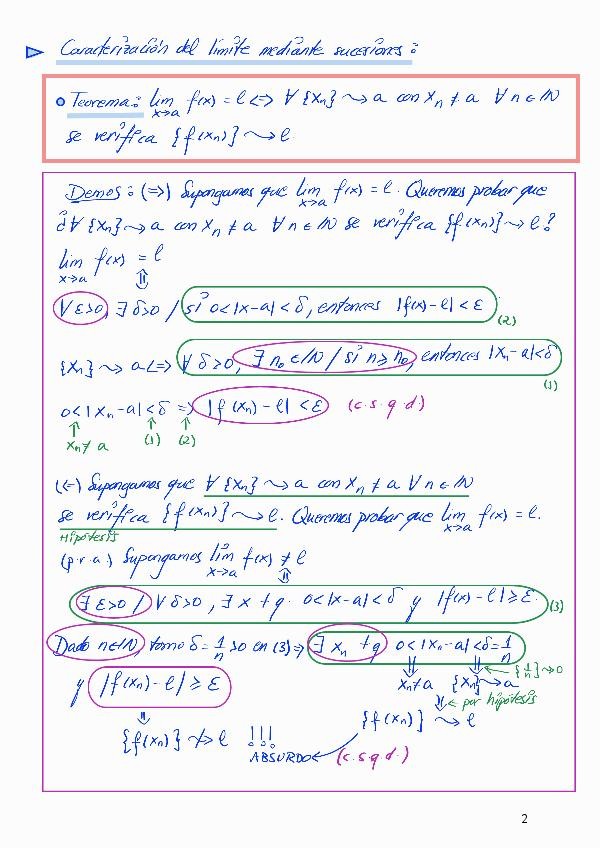 Caracterización del límite mediante sucesiones:
Teorema: lim x→a f(x) = l ⟺ ∀ {xn} ⇝ a con xn ≠ a ∀ n ∈ ℕ
se verifica {f(xn)} ⇝ l
Demos: (⟹) Supongamos que lim x→a f(x) = l. Queremos probar que
¿∀ {xn} ⇝ a con xn ≠ a ∀ n ∈ ℕ se verifica {f(xn)} ⇝ l?
lim x→a f(x) = l
⇕
∀ ε>0, ∃ δ>0 / si 0<|x-a|<δ, entonces |f(x)-l|<ε
(2)
{xn} ⇝ a ⟺ ∀ δ>0, ∃ n₀ ∈ ℕ / si n≥n₀, entonces |xn-a|<δ
(1)
0<|xn-a|<δ ⟹ |f(xn)-l|<ε (c.s.q.d)
↑ ↑ ↑
xn≠a (1) (2)
(⟸) Supongamos que ∀ {xn} ⇝ a con xn ≠ a ∀ n ∈ ℕ
se verifica {f(xn)} ⇝ l. Queremos probar que lim x→a f(x) = l.
HIPÓTESIS
(p.r.a.) Supongamos lim x→a f(x) ≠ l
⇕
∃ ε>0 / ∀ δ>0, ∃ x tq. 0<|x-a|<δ y |f(x)-l|≥ε (3)
Dado n∈ℕ, tomo δ=1/n>0 en (3) ⟹ ∃ xn tq 0<|xn-a|<δ=1/n
⇓ ⇓ ← {1/n}→0
y |f(xn)-l|≥ε xn≠a {xn}⇝a
⇓ ← por hipótesis
⇓ {f(xn)} ⇝ l
{f(xn)} ⇝̸ l !!!
ABSURDO ← (c.s.q.d.)
2